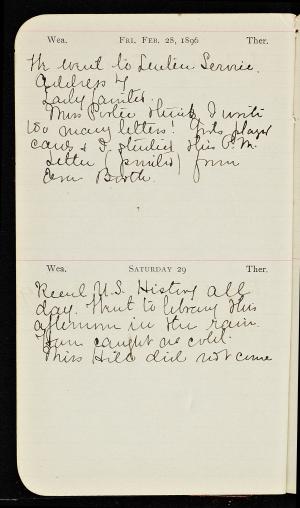 Wea. FRI. FEB. 28, 1896 Ther.
We went to Lenten Service.
Address by
Lady Janited.
Miss Porter thinks I write
too many letters! Girls played
cards & I studied this P.M.
Letter (pencilled) from
Booth.
Wea. SATURDAY 29 Ther.
Read U.S. History all
day. Went to library this
afternoon in the rain.
Have caught no cold.
Miss Hild did not come